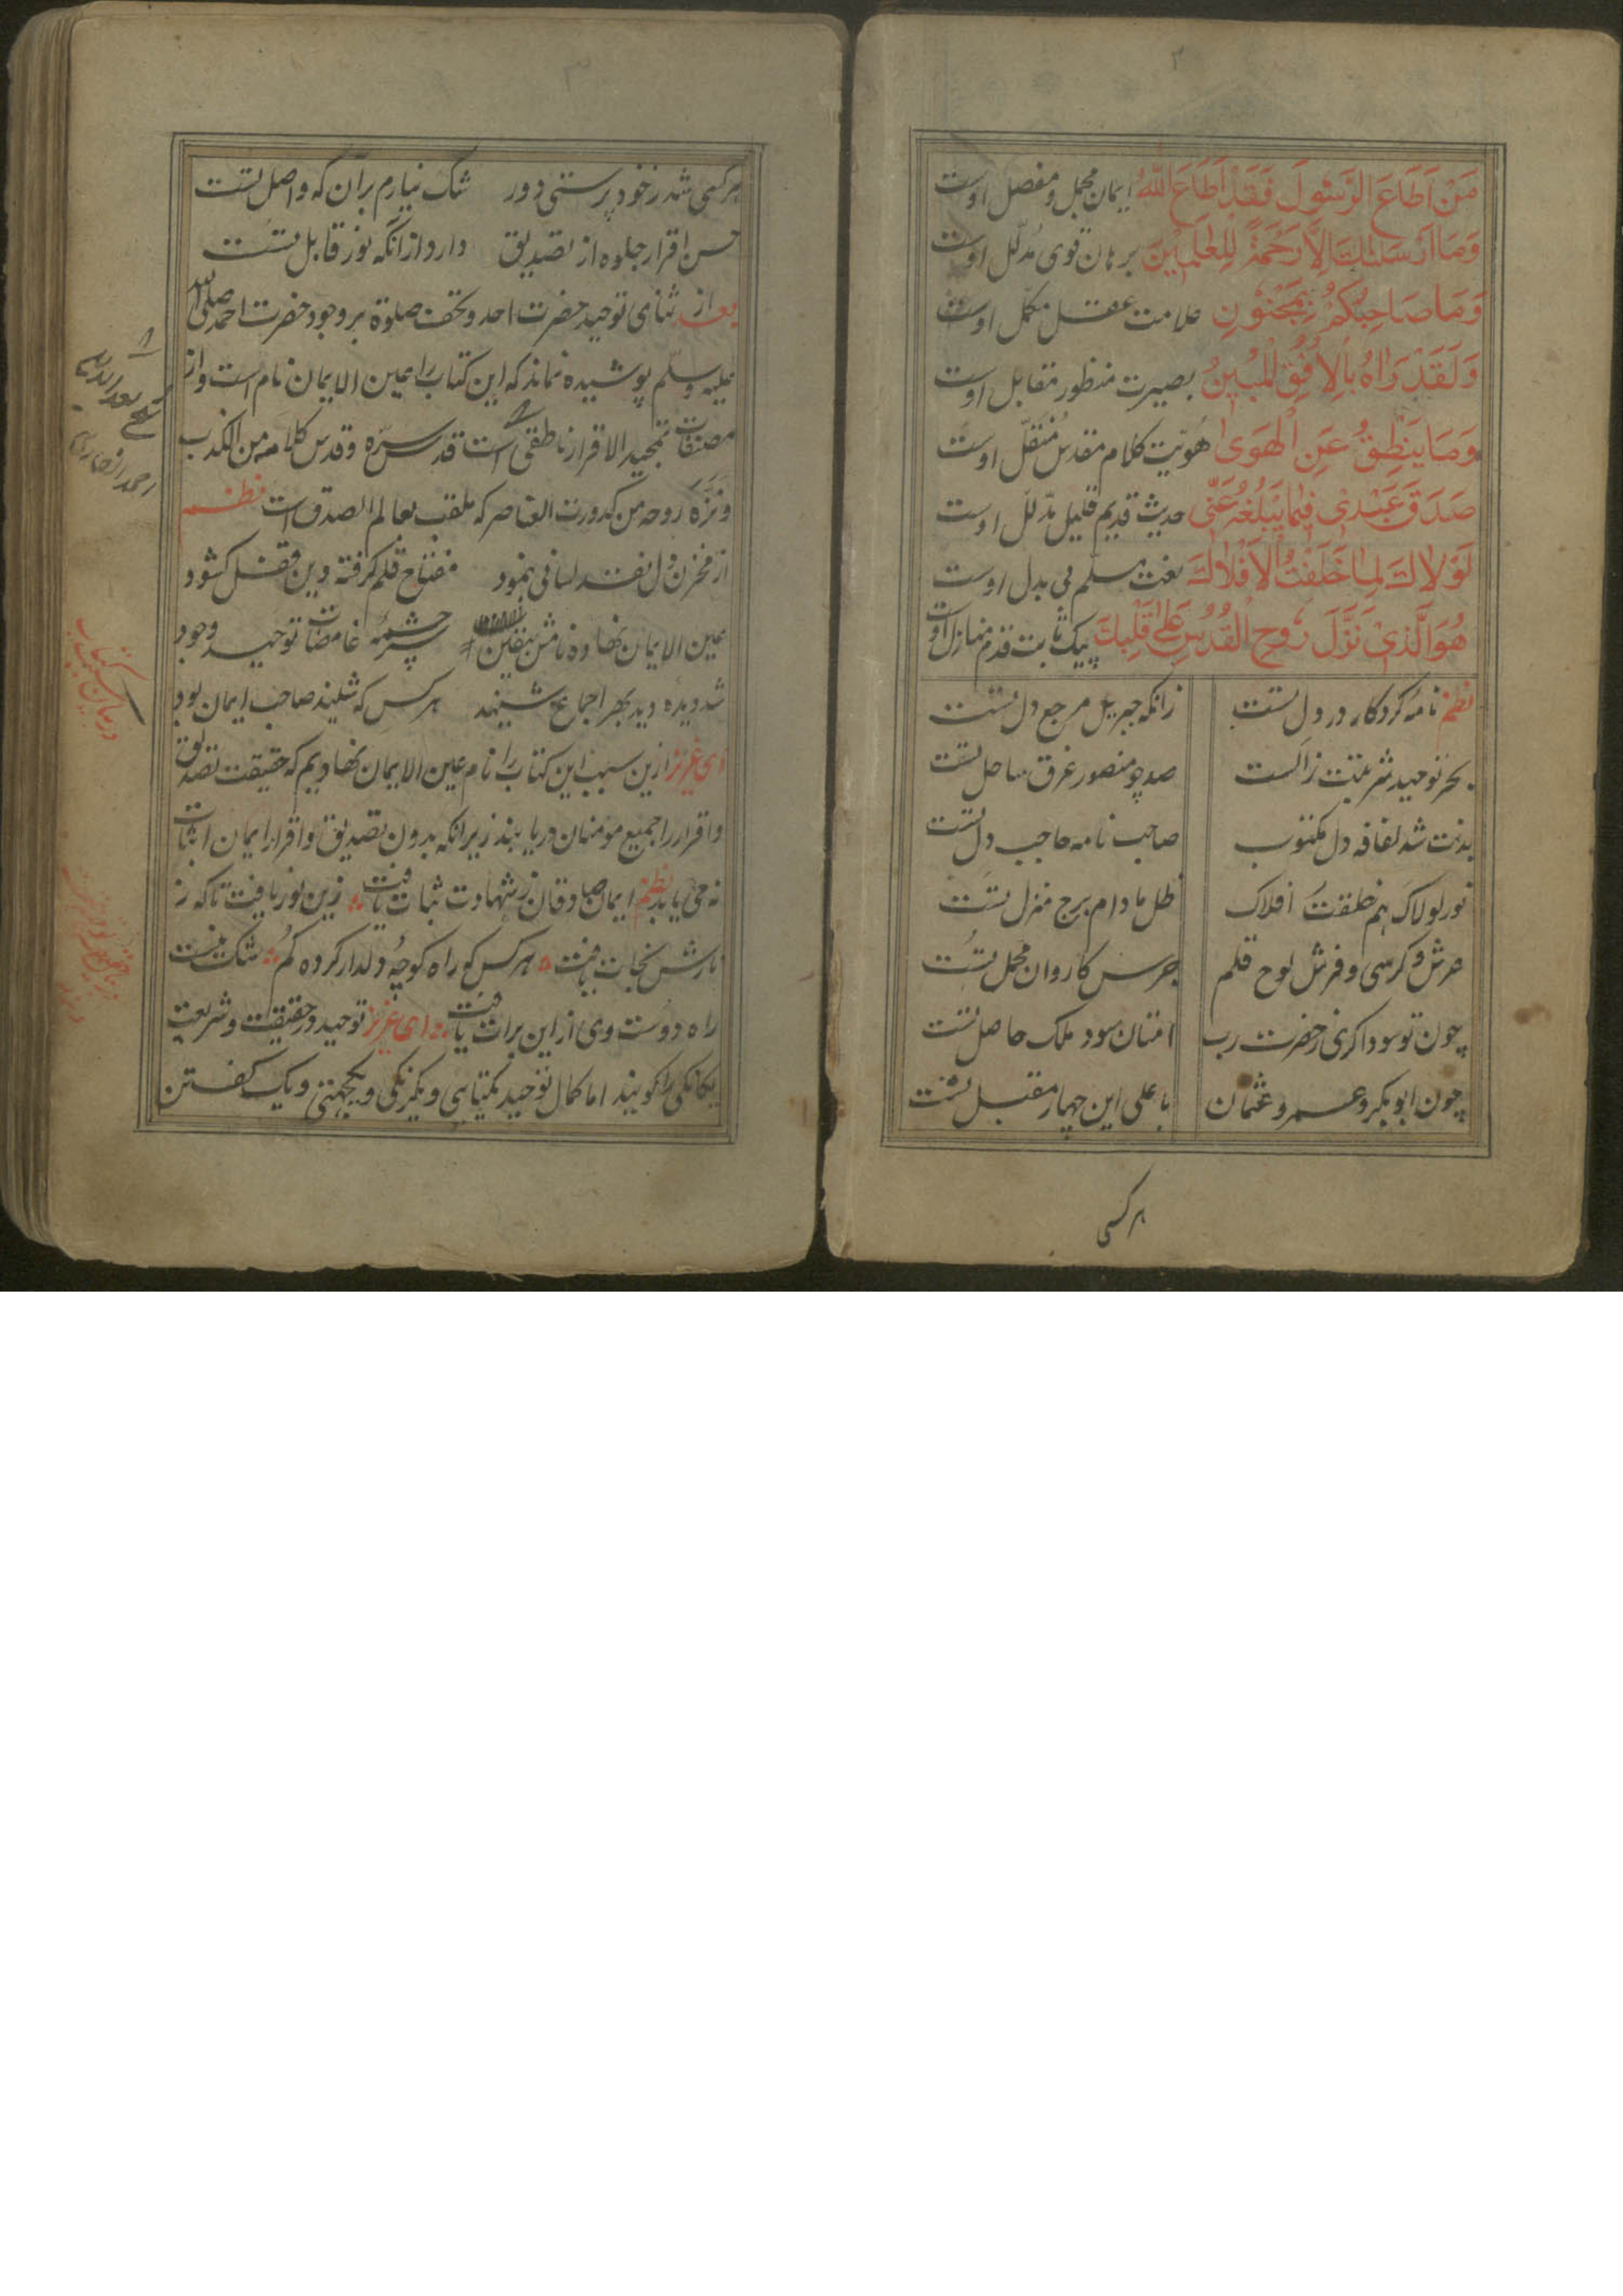 ۲
مَنْ اَطَاعَ الرَّسُولَ فَقَدْ اَطَاعَ اللهُ ایمان مجمل و مفصل اوست
وَمَا اَرْسَلْنٰكَ اِلَّا رَحْمَةً لِلْعٰلَمِیْنَ برهان قوی مُدلّل اوست
وَمَا صَاحِبُكُمْ بِمَجْنُوْنٍ علامت عقل مکمّل اوست
وَلَقَدْ رَاٰهُ بِالْاُفُقِ الْمُبِیْنُ بصیرت منظور مقابل اوست
وَمَا یَنْطِقُ عَنِ الْهَوٰی هُویّت کلام مقدس مُنتقّل اوست
صَدَقَ عَبْدِیْ فِیْمَا یُبَلِّغُهُ عَنِّی حدیث قدیم قلیل مدّلل اوست
لَوْلَاكَ لِمَا خَلَقْتُ الْاَفْلَاكَ نعت مسلّم بی بدل اوست
هُوَ الَّذِیْ نَزَّلَ رُوْحِ الْقُدُسِ عَلٰی قَلْبِكَ پیک ثابت قدم منازل اوست
نظم نامهٔ کردکار در دل تست زانکه جبریل مرجع دل تست
بحر توحید شربتت زالست صد چو منصور غرق ساحل تست
بدنت شد لفافه دل مکتوب صاحب نامه حاجب دل تست
نور لولاک هم خلقت افلاک ظل مادام برج منزل تست
عرش و کرسی و فرش لوح قلم جرس کاروان محمل تست
چون تو سوداکری ز حضرت رب امتنان سود ملک حاصل تست
چون ابوبکر و عمر و عثمان با علی این چهار مقبل تست
هر کسی
۳
هر کسی شد ز خود پرستی دور شک نیارم بر آن که واصل تست
حسن اقرار جلوه از تصدیق دارد از انکه نور قابل تست
بعد از ثنای توحید حضرت احد و تحف صلوة بر وجود حضرت احمد صلی الله
علیه وسلّم پوشیده نماند که این کتاب را عین الایمان نام است و از
مصنفات تمجید الاقرار ناطقی است قدس سرّه و قدس کلامه من الکذب
و نزّه روحه من کدورت العناصر که ملقب بعالم الصدق است نظم
از مخزن دل نقد لسانی بنمود مفتاح قلم کرفته وین قفل کشود
عین الایمان نهاده نامش بیقین سرچشمهٔ غامضات توحید وجود
شد دیده دید بهر اجماع شنید هر کس که شنید صاحب ایمان بود
ای عزیز ازین سبب این کتاب را نام عین الایمان نهادیم که حقیقت تصدیق
و اقرار را جمیع مومنان دریابند زیرا انکه بدون تصدیق و اقرار ایمان اثبات
نه می یابد نظم ایمان صادقان ز شهادت ثبات یافت زین نور یافت تا که ز
نارش نجات یافت هر کس که راه کوچهٔ دلدار کرده کم شک نیست
راه دوست وی از این برات یافت ای عزیز توحید در حقیقت و شریعت
یکانکی را کویند اما کمال توحید یکتایی و یکرنکی و یکجهتی و یک کفتن